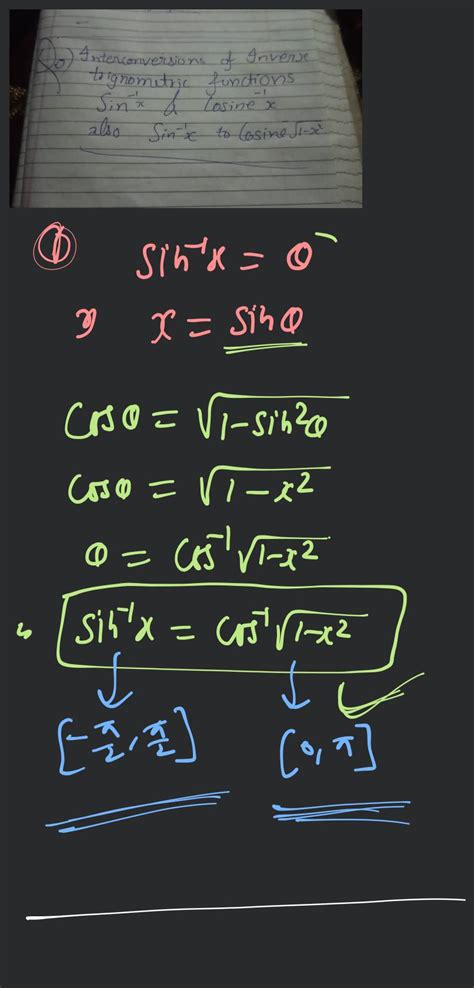 Interconversions of Inverse
trignometric functions
Sin⁻¹x & Cosine⁻¹x
also Sin⁻¹x to Cosine √1-x²
① sin⁻¹x = θ
x = sinθ
cosθ = √1-sin²θ
cosθ = √1-x²
θ = cos⁻¹√1-x²
sin⁻¹x = cos⁻¹√1-x²
[-π/2, π/2] [0, π]